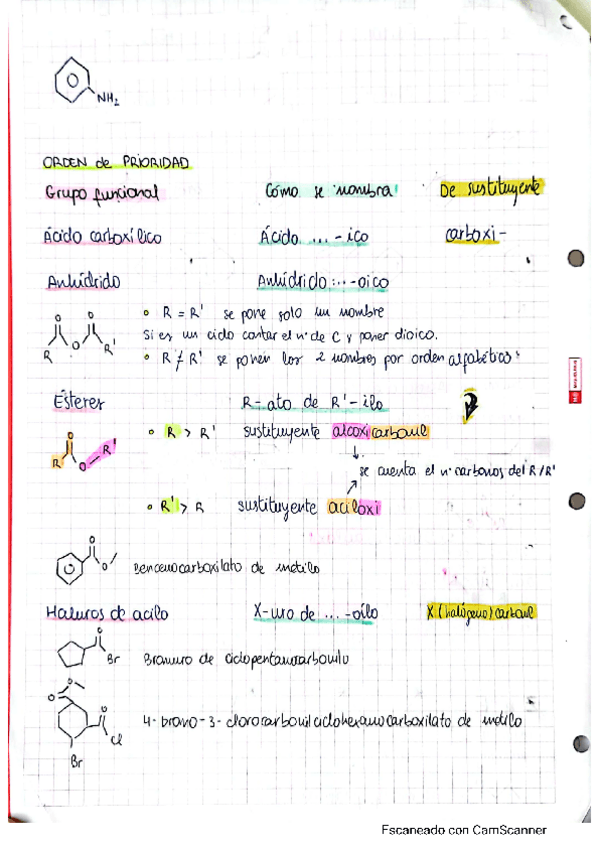 NH₂
ORDEN de PRIORIDAD
Grupo funcional Cómo se nombra De sustituyente
Ácido carboxílico Ácido ... -ico carboxi-
Anhídrido Anhídrido ... -oico
O O R O R'
• R = R' se pone solo un nombre
Si es un ciclo contar el nº de C y poner dioico.
• R ≠ R' se ponen los 2 nombres por orden alfabético
Ésteres R-ato de R'-ilo
O R O R'
• R > R' sustituyente alcoxicarbonil
se cuenta el nº carbonos del R/R'
• R' > R sustituyente aciloxi
O O
Bencenocarboxilato de metilo
Haluros de acilo X-uro de ... -oílo X(halógeno)carbonil
O Br Bromuro de ciclopentanocarbonilo
O O O Cl Br
4-bromo-3-clorocarbonilciclohexanocarboxilato de metilo
Escaneado con CamScanner